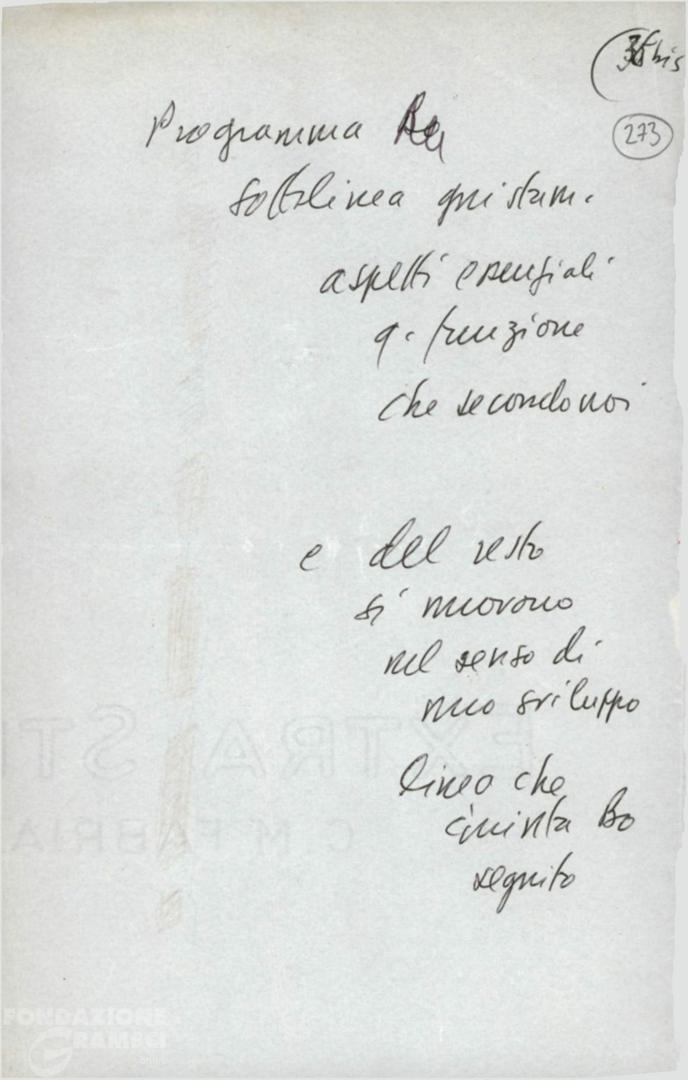 36 bis
273
Programma Bo
sottolinea giustam.
aspetti essenziali
q. funzione
che secondo noi
e del resto
si muovono
nel senso di
uno sviluppo
linea che
giunta Bo
seguito
EXTRA ST
C. M. FABRIA
FONDAZIONE
GRAMSCI